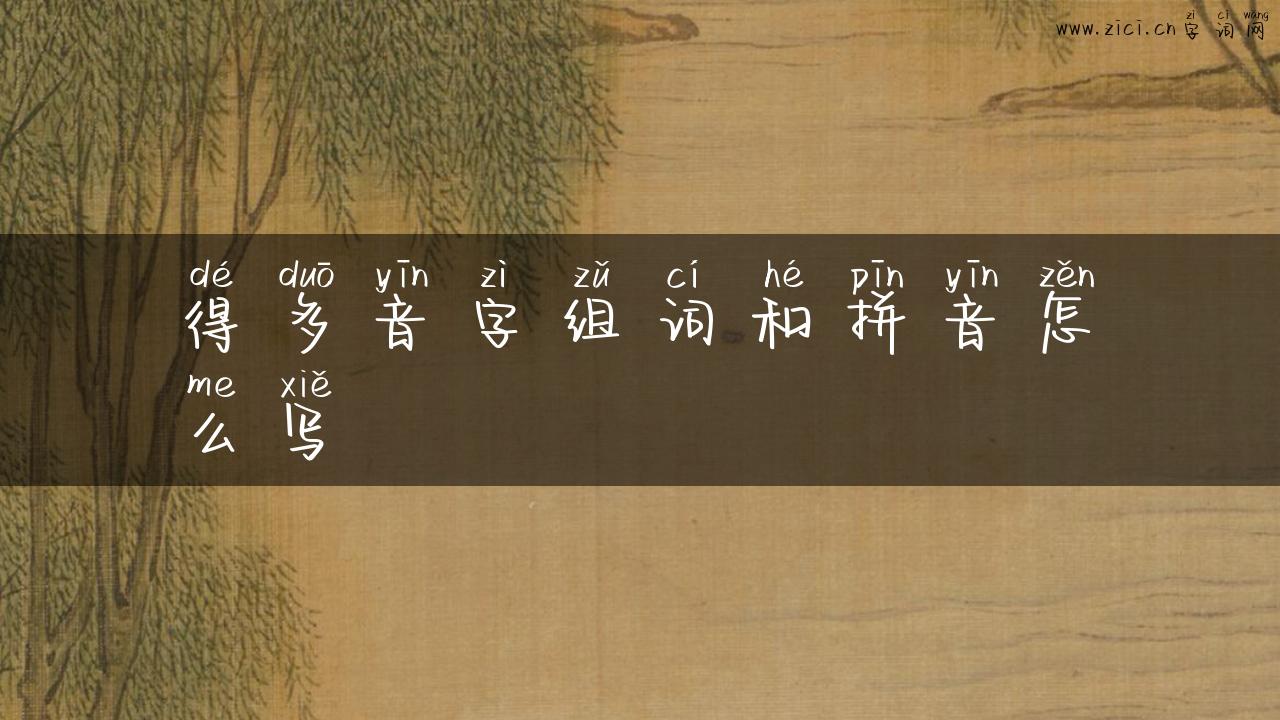 zì cí wǎng
www.zici.cn字词网
dé duō yīn zì zǔ cí hé pīn yīn zěn
得多音字组词和拼音怎
me xiě
么写